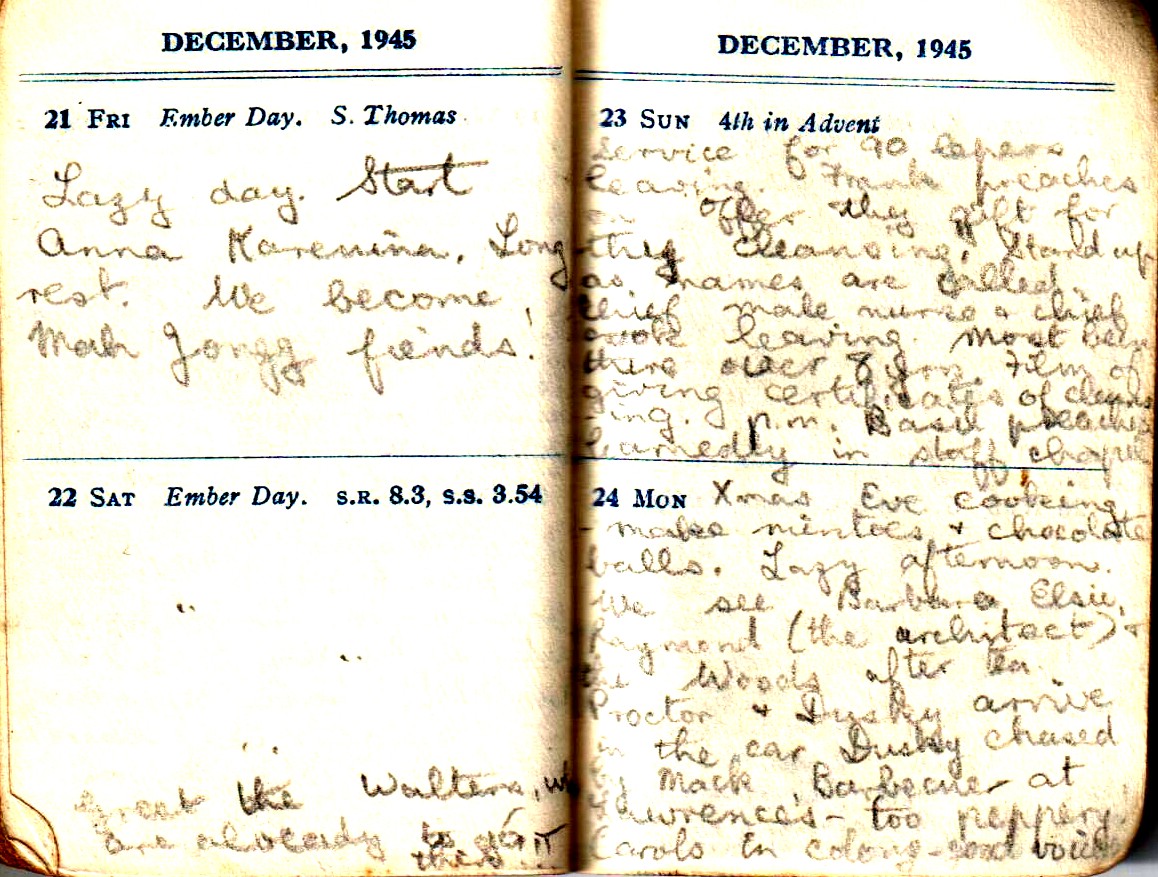 DECEMBER, 1945
21 FRI Ember Day. S. Thomas
Lazy day. Start
Anna Karenina. Long
rest. We become
Mah Jongg fiends!
22 SAT Ember Day. S.R. 8.3, S.S. 3.54
Greet the Walters, wh
are already to
this
DECEMBER, 1945
23 SUN 4th in Advent
Service for 90 lepers
leaving. Frank preaches
offer thy gift for
thy cleansing. Stand up
as names are called.
Chief male nurse & chief
cook leaving. Most been
there over yrs. Film of
giving certificates of cleans
ing. p.m. Basil preaches
learnedly in staff chapel
24 MON Xmas Eve cooking
- make mintoes & chocolate
balls. Lazy afternoon.
We see Barbara, Elsie,
Raymond (the architect) &
the Woods after tea.
Proctor & Dusky arrive
in the car Dusky chased
by Mack. Barbecue at
Lawrence's - too peppery.
Carols in colony - good voices